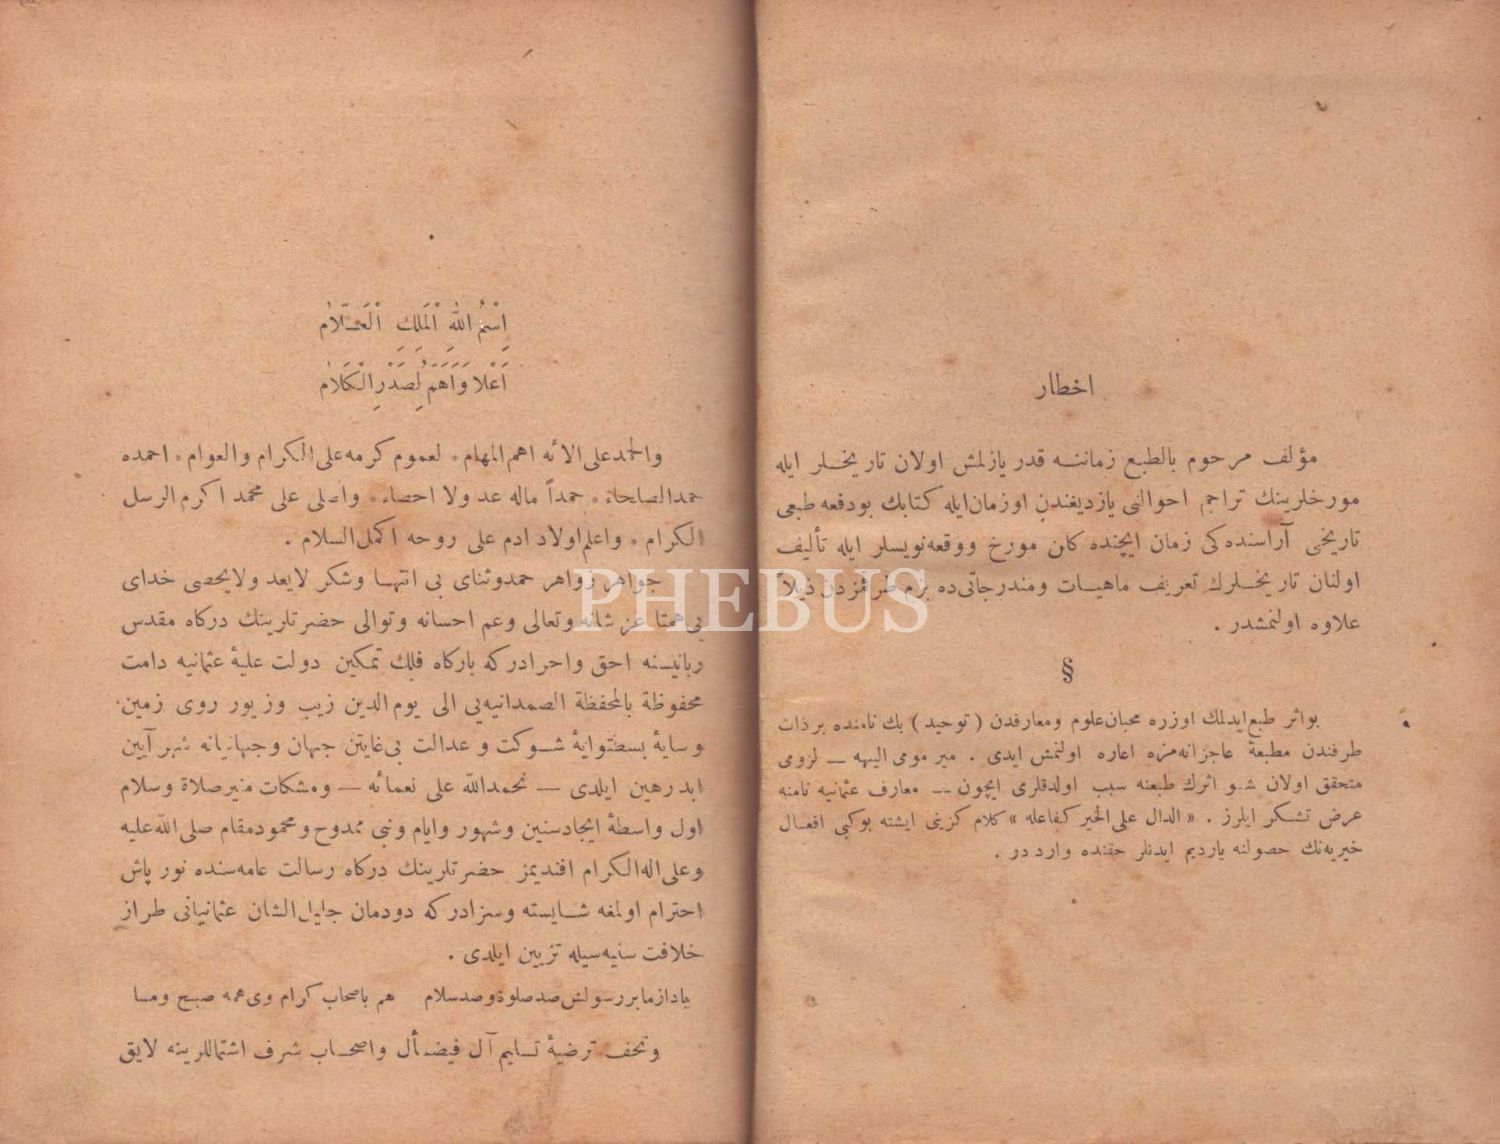 اخطار
مؤلف مرحوم بالطبع زماننه قدر يازلمش اولان تاريخلر ايله
مورخلرينك تراجم احوالنى يازديغندن اوزمان ايله كتابك بودفعه طبعى
تاريخى آراسنده كى زمان ايچنده كان مورخ ووقعه نويسلر ايله تأليف
اولنان تاريخلرك تعريف ماهيات ومندرجاتى ده بزم طرفمزدن ذيلاً
علاوه اولنمشدر .
§
بواثر طبع ايدلمك اوزره محبان علوم ومعارفدن ( توحيد ) بك نامنده برذات
طرفندن مطبعهٔ عاجزانه مزه اعاره اولنمش ايدى . مير مومى اليهه — لزومى
متحقق اولان شو اثرك طبعنه سبب اولدقلرى ايچون — معارف عثمانيه نامنه
عرض تشكر ايلرز . « الدال على الخير كفاعله » كلام كزينى ايشته بوكبى افعال
خيريه نك حصولنه يارديم ايدنلر حقنده وارد در .
اِسْمُ اللهِ الْمَلِكِ الْعَلّاٰمِ
اَعْلاَ وَاَهَمّ لِصَدْرِ الْكَلاٰمِ
والحمد على الائه اهم المهام . لعموم كرمه على الكرام والعوام . احمده
حمد الصلحاء . حمداً ماله عد ولا احصاء . واصلى على محمد اكرم الرسل
الكرام . واعلم اولاد ادم على روحه اكمل السلام .
جواهر زواهر حمدوثناى بى انتها وشكر لايعد ولايحصى خداى
بى همتا عز شانه وتعالى وعم احسانه وتوالى حضرتلرينك دركاه مقدس
ربانيسنه احق واحرادركه باركاه فلك تمكين دولت عليهٔ عثمانيه دامت
محفوظة بالمحفظة الصمدانيه يى الى يوم الدين زيب وزيور روى زمين
وسايهٔ بسطتوايهٔ شوكت و عدالت بى غايتن جهان وجهانيانه شهر آيين
ابد رهين ايلدى — نحمد الله على نعمائه — ومشكات منير صلاة وسلام
اول واسطهٔ ايجاد سنين وشهور وايام ونبى ممدوح ومحمود مقام صلى الله عليه
وعلى اله الكرام افنديمز حضرتلرينك دركاه رسالت عامه سنده نور پاش
احترام اولمغه شايسته وسزادركه دودمان جليل الشان عثمانيانى طراز
خلافت سنيه سيله تزيين ايلدى .
باداز ما بر رسولش صد صلوة وصد سلام هم باصحاب كرام وى همه صبح ومسا
وتحف ترضيهٔ تسليم آل فيضأل واصحاب شرف اشتماللرينه لايق
PHEBUS